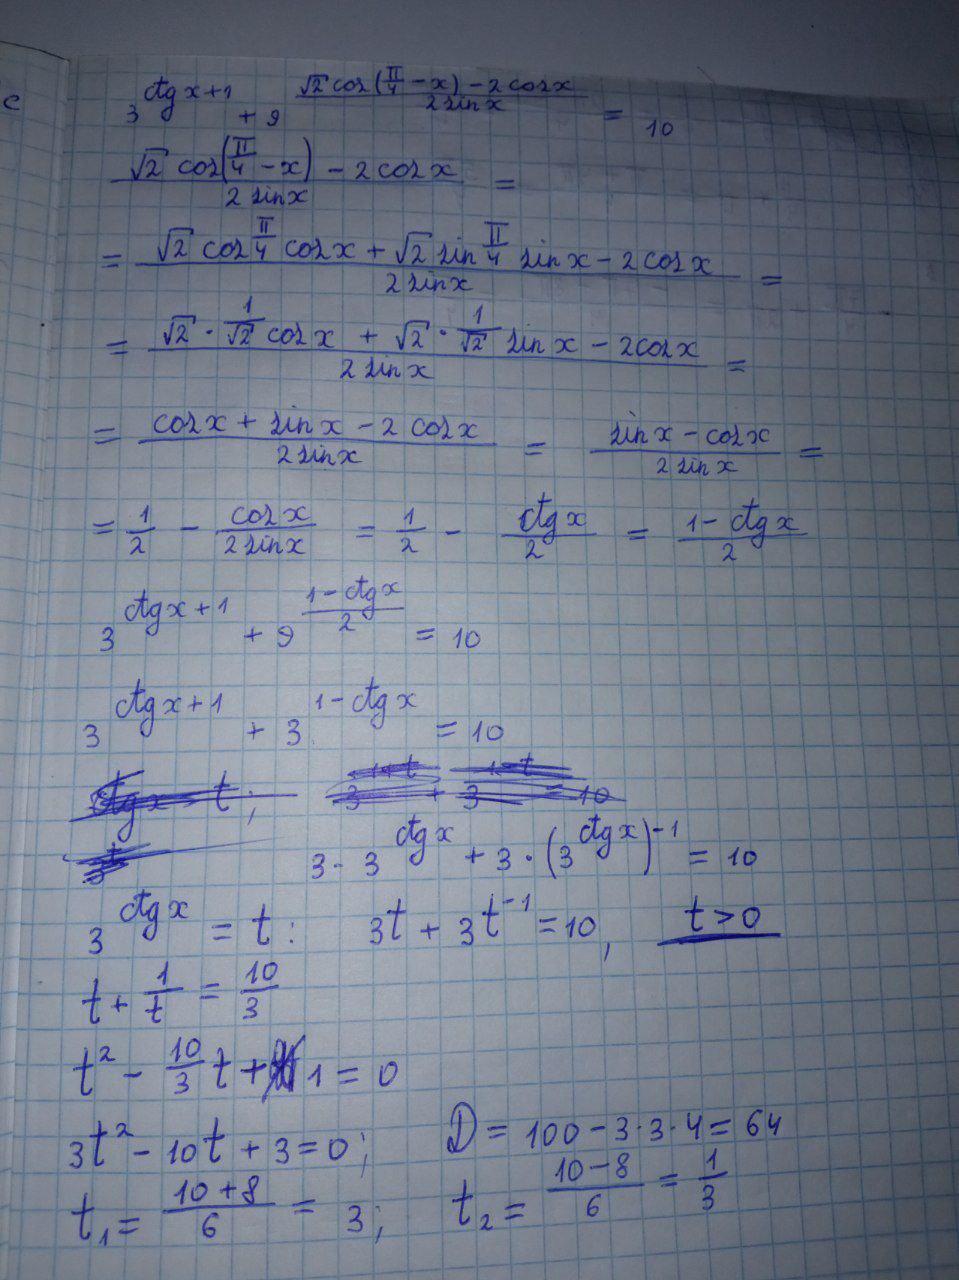 с
3^(ctgx+1) + 9^((√2 cos(π/4 - x) - 2cosx)/(2sinx)) = 10
(√2 cos(π/4 - x) - 2cosx)/(2sinx) =
= (√2 cos π/4 cosx + √2 sin π/4 sinx - 2cosx)/(2sinx) =
= (√2 · 1/√2 cosx + √2 · 1/√2 sinx - 2cosx)/(2sinx) =
= (cosx + sinx - 2cosx)/(2sinx) = (sinx - cosx)/(2sinx) =
= 1/2 - cosx/(2sinx) = 1/2 - ctgx/2 = (1 - ctgx)/2
3^(ctgx+1) + 9^((1-ctgx)/2) = 10
3^(ctgx+1) + 3^(1-ctgx) = 10
ctgx = t; 3^(1+t) + 3^(1-t) = 10
3^t
3 · 3^(ctgx) + 3 · (3^(ctgx))^(-1) = 10
3^(ctgx) = t: 3t + 3t^(-1) = 10, t > 0
t + 1/t = 10/3
t² - 10/3 t + 1 = 0
3t² - 10t + 3 = 0; D = 100 - 3·3·4 = 64
t₁ = (10+8)/6 = 3; t₂ = (10-8)/6 = 1/3